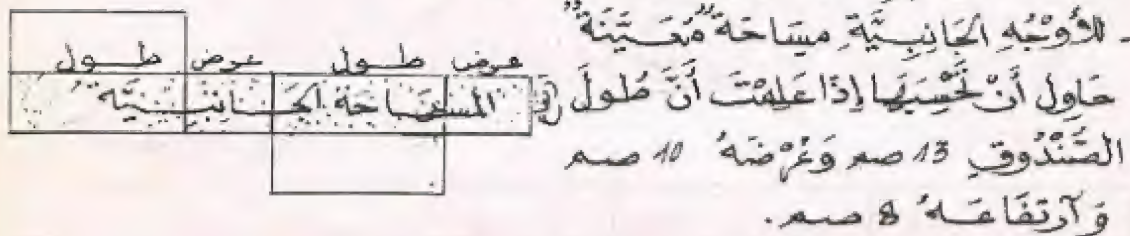 - للأَوْجُهِ الجَانِبِيَّةِ مِسَاحَةٌ "مُعَيَّنَةٌ"
حَاوِل أَنْ تَحْسِبَهَا إِذَا عَلِمْتَ أَنَّ طُولَ
الصُّنْدُوقِ 13 صم وَعَرْضَهُ 10 صم
وَارْتِفَاعَهُ 8 صم.
عرض طول عرض طول
المساحة الجانبيَّة